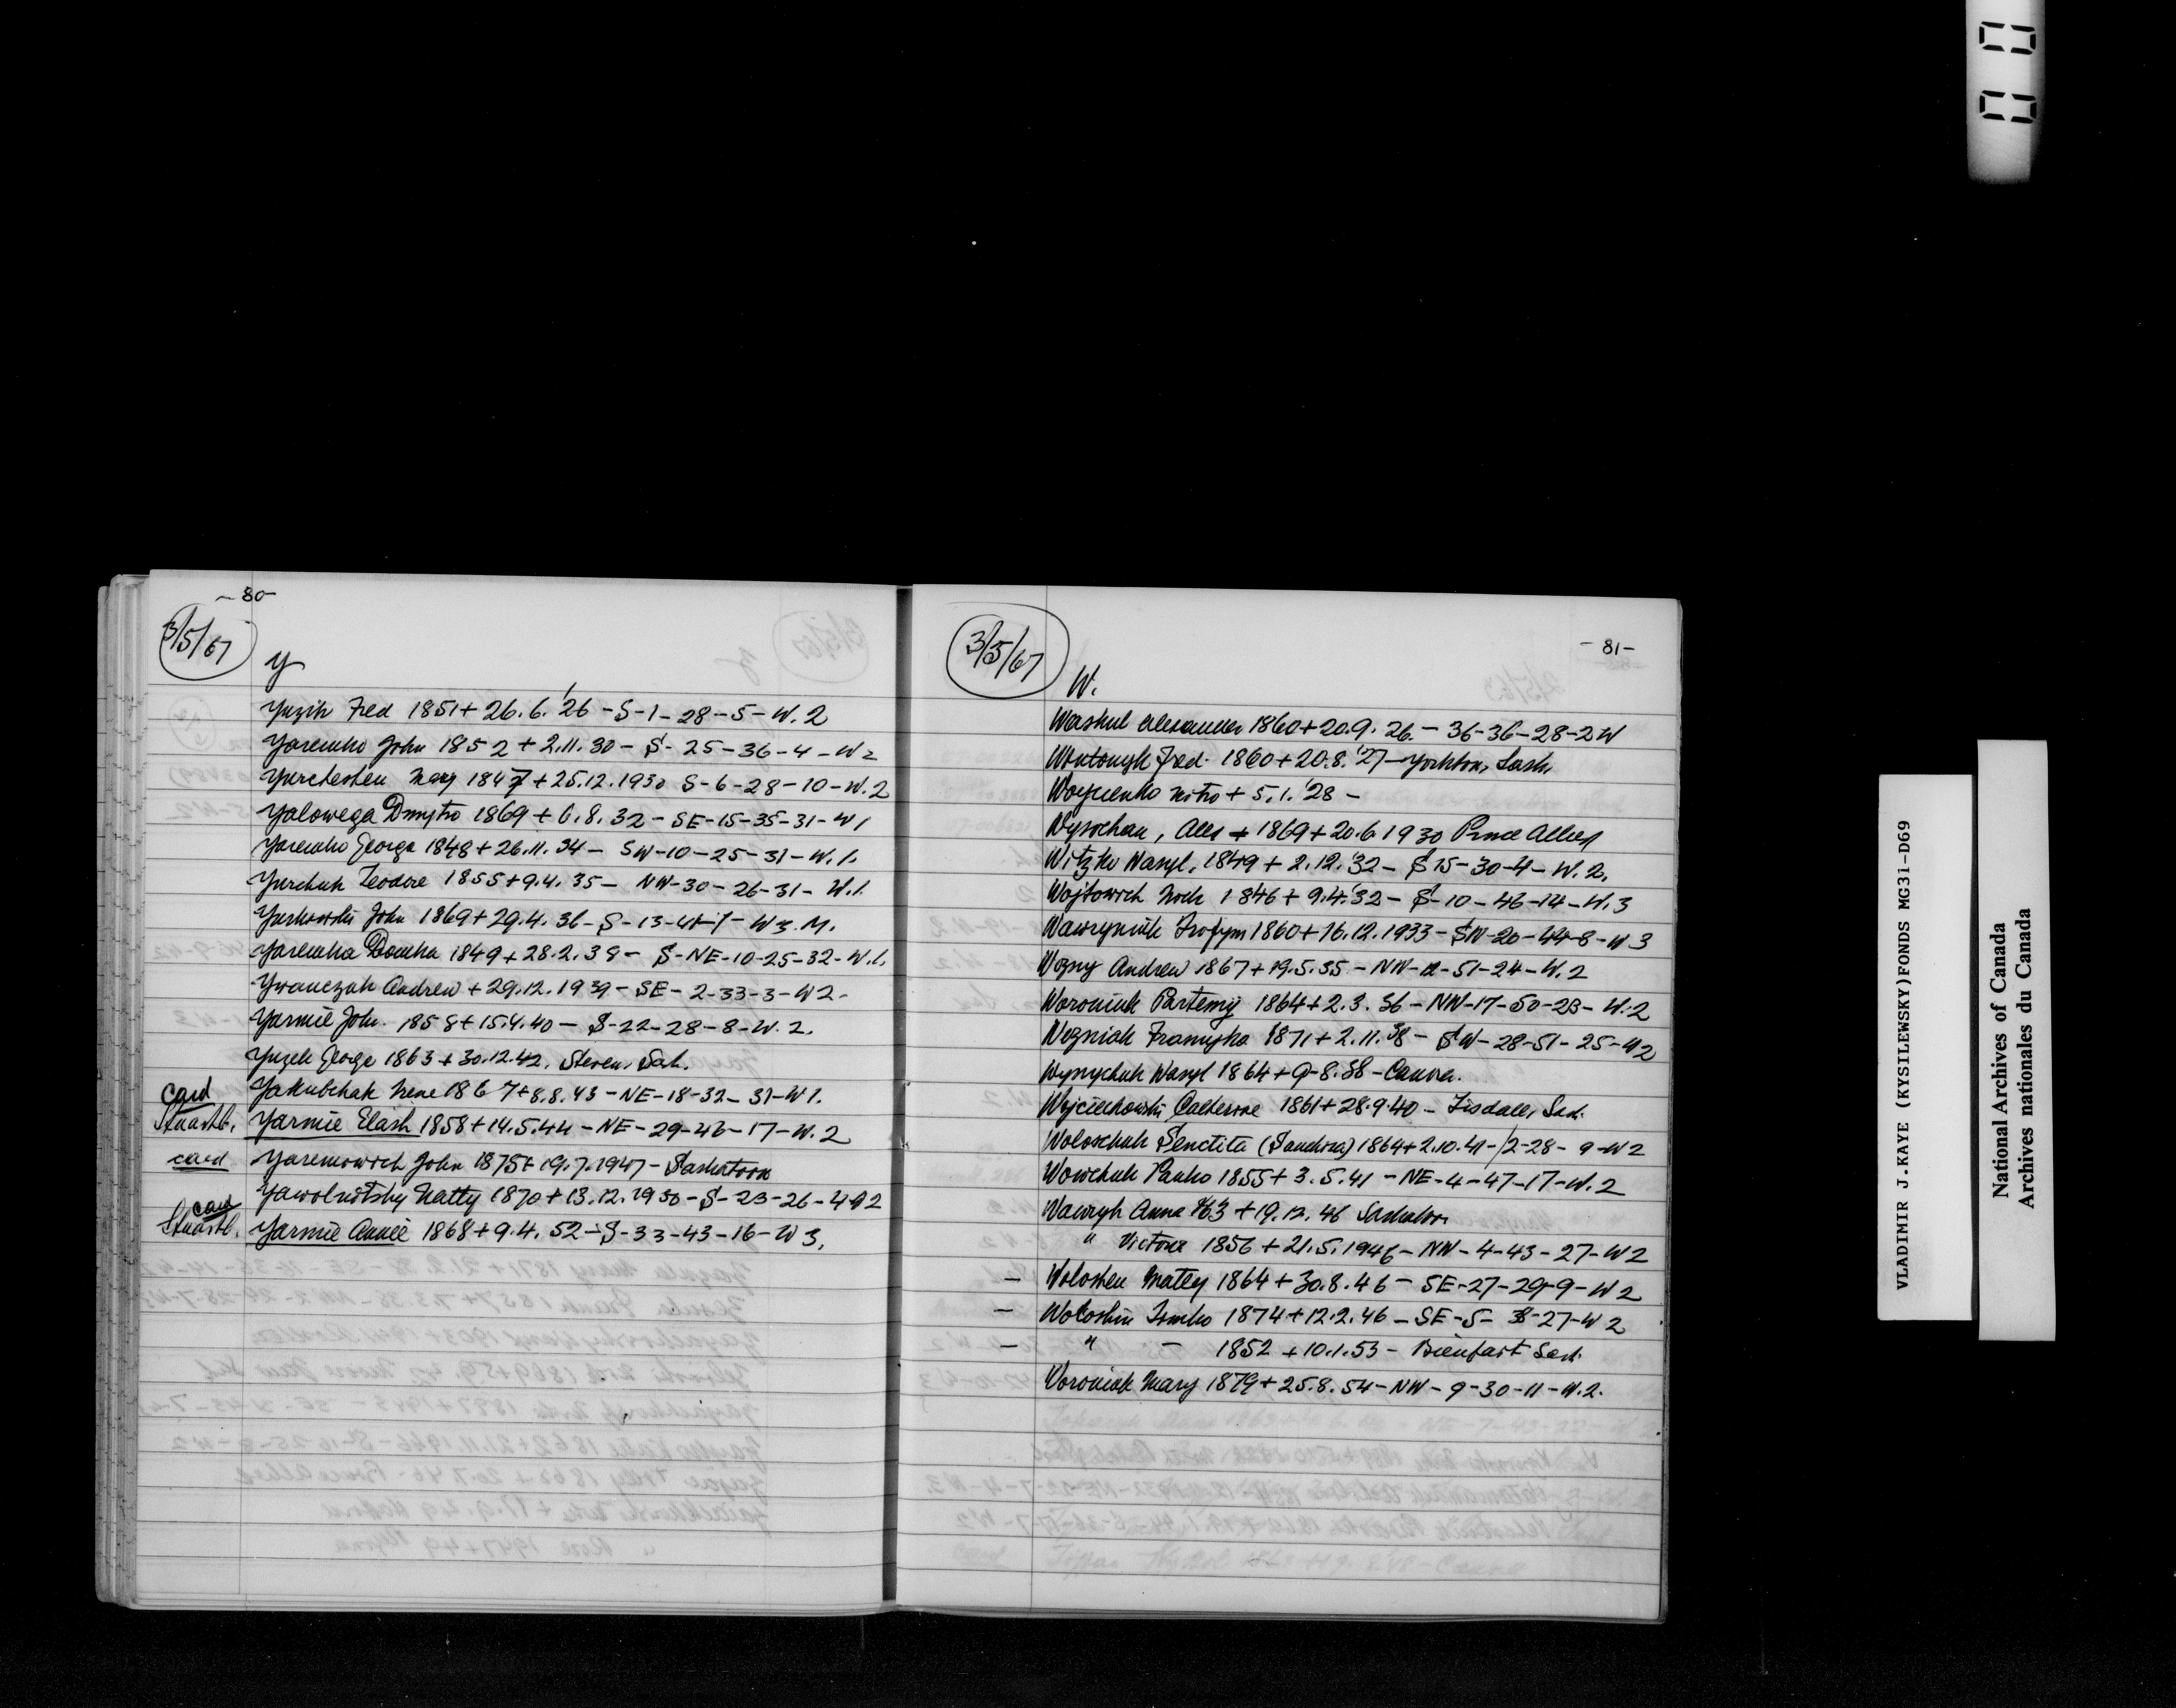 -80-
3/5/67
Y
Yuzik Fred 1851+26.6.'26-S-1-28-5-W.2
Yaremko John 1852+2.11.30-S-25-36-4-W2
Yurchesken Mary 1847+25.12.1930 S-6-28-10-W.2
Yalowega Dmytro 1869+6.8.32-SE-15-35-31-W1
Yaremko George 1848+26.11.34-SW-10-25-31-W.1.
Yurchuk Teodore 1855+9.4.35-NW-30-26-31-W.1.
Yurkowski John 1869+29.4.36-S-13- W3.M.
Yaremka Domka 1849+28.2.38-S-NE-10-25-32-W.1.
Ywanczuk Andrew+29.12.1939-SE-2-33-3-W2-
Yarmie John. 1858+15.4.40-S-22-28-8-W.2.
Yuzek George 1863+30.12.42. Steven, Sask.
card Yakubchak Irene 1867+8.8.43-NE-18-32-31-W1.
Stuartb. Yarmie Eliash 1858+14.5.44-NE-29-46-17-W.2
card Yaremowich John 1875+19.7.1947-Saskatoon
Yawolnitsky Natty 1870+13.12.1950-S-23-26-4
card
Stuartb. Yarmie Annie 1868+9.4.52-S-33-43-16-W3.
3/5/67
-81-
W.
Washul Alexander 1860+20.9.26.-36-36-28-2W
Fred. 1860+20.8.'27-Yorkton, Sask.
Nitro+5.1.'28-
Wysochan, Alex+1869+20.6 1930 Prince Albert
Witzko Wasyl. 1849+2.12.'32-S15-30-4-W.2.
Wojtowich 1846+9.4.'32-S-10-46-14-W.3
Wawryniuk Trofym 1860+16.12.1933-SW-20-44-8-W3
Wozny Andrew 1867+19.5.35-NW-12-51-24-W.2
Woroniuk Partemy 1864+2.3.36-NW-17-50-23-W.2
Wozniak Franyska 1871+2.11.38-SW-28-51-25-W2
Wynnychuk Wasyl 1864+9-8.38-Canora.
Wojciechowski Catherine 1861+28.9.40-Tisdale, Sask.
Woloschuk Senctita (Sandra) 1864+2.10.41-12-28-9-W2
Wowchuk Panko 1855+3.5.41-NE-4-47-17-W.2
Wawryk Anna '63+19.12.46 Saskatoon
" Victoria 1856+21.5.1946-NW-4-43-27-W2
- Woloshen Matley 1864+30.8.46-SE-27-29-9-W2
- Woloshin Tomko 1874+12.2.46-SE-5- -27-W2
- " - 1852+10.1.53-Bienfait Sask.
Woroniak Mary 1879+25.8.54-NW-9-30-11-W.2.
VLADIMIR J.KAYE (KYSILEWSKY)FONDS MG31-D69
National Archives of Canada
Archives nationales du Canada